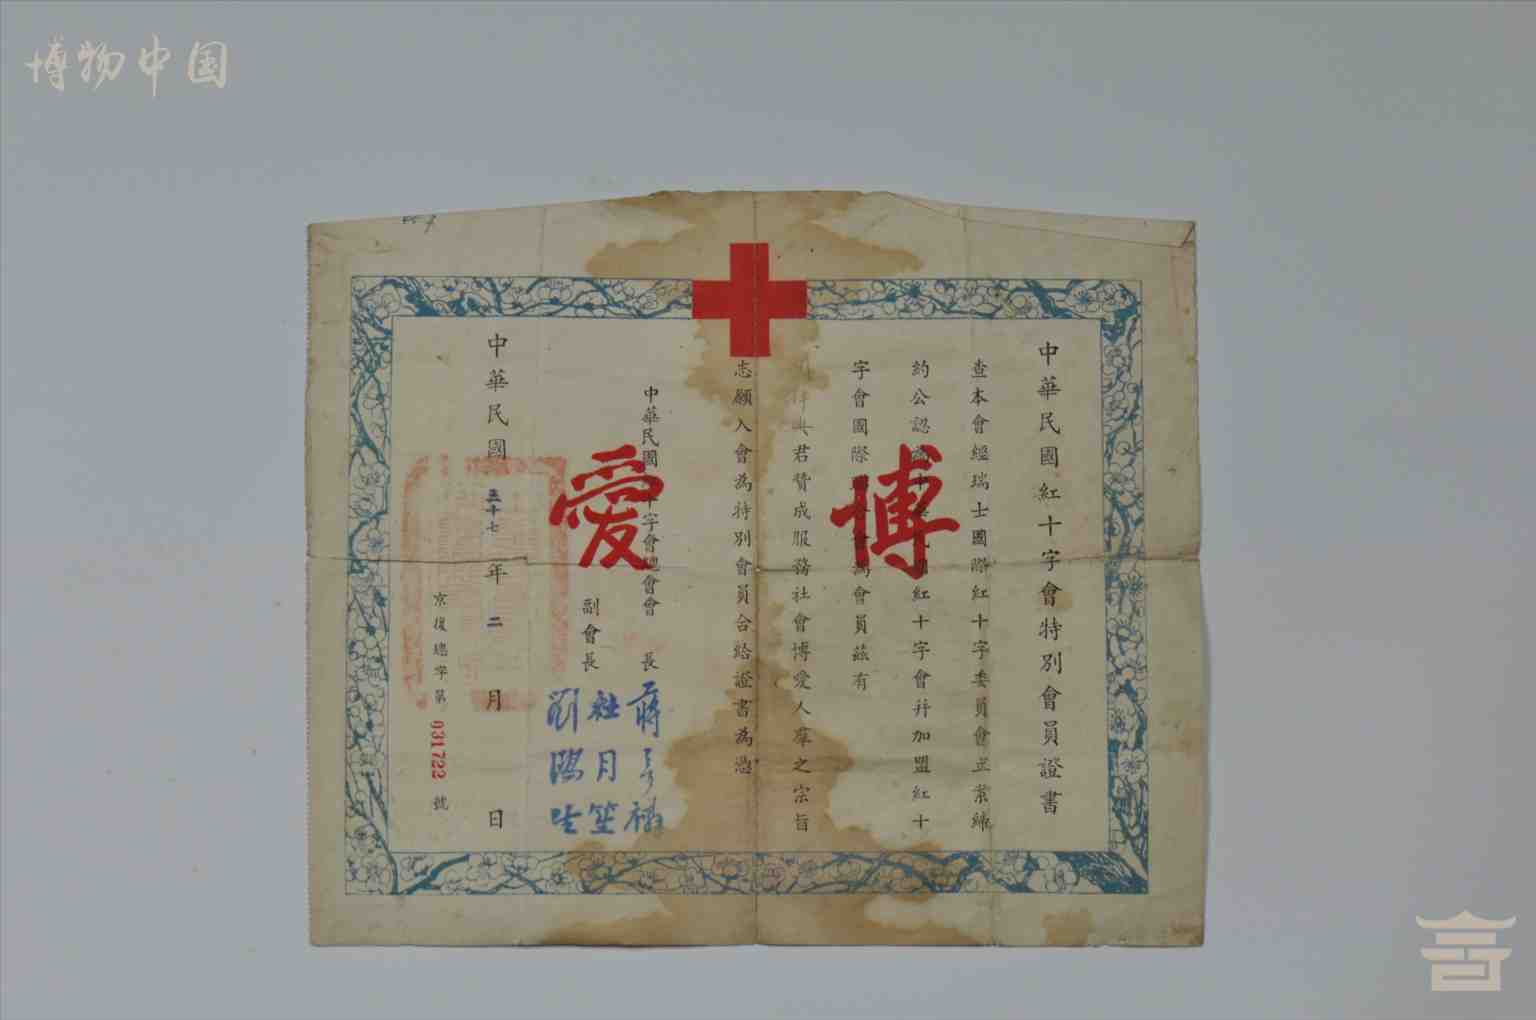 博物中国
中華民國紅十字會特別會員證書
查本會經瑞士國際紅十字委員會立案締
約公認為中華民國紅十字會并加盟紅十
字會國際聯合會為會員茲有
君贊成服務社會博愛人羣之宗旨
志願入會為特別會員合給證書為憑
博愛
中華民國紅十字會總會會長 蔣夢麟
副會長 杜月笙
劉鴻生
中華民國三十七年二月 日
京復總字第031722號